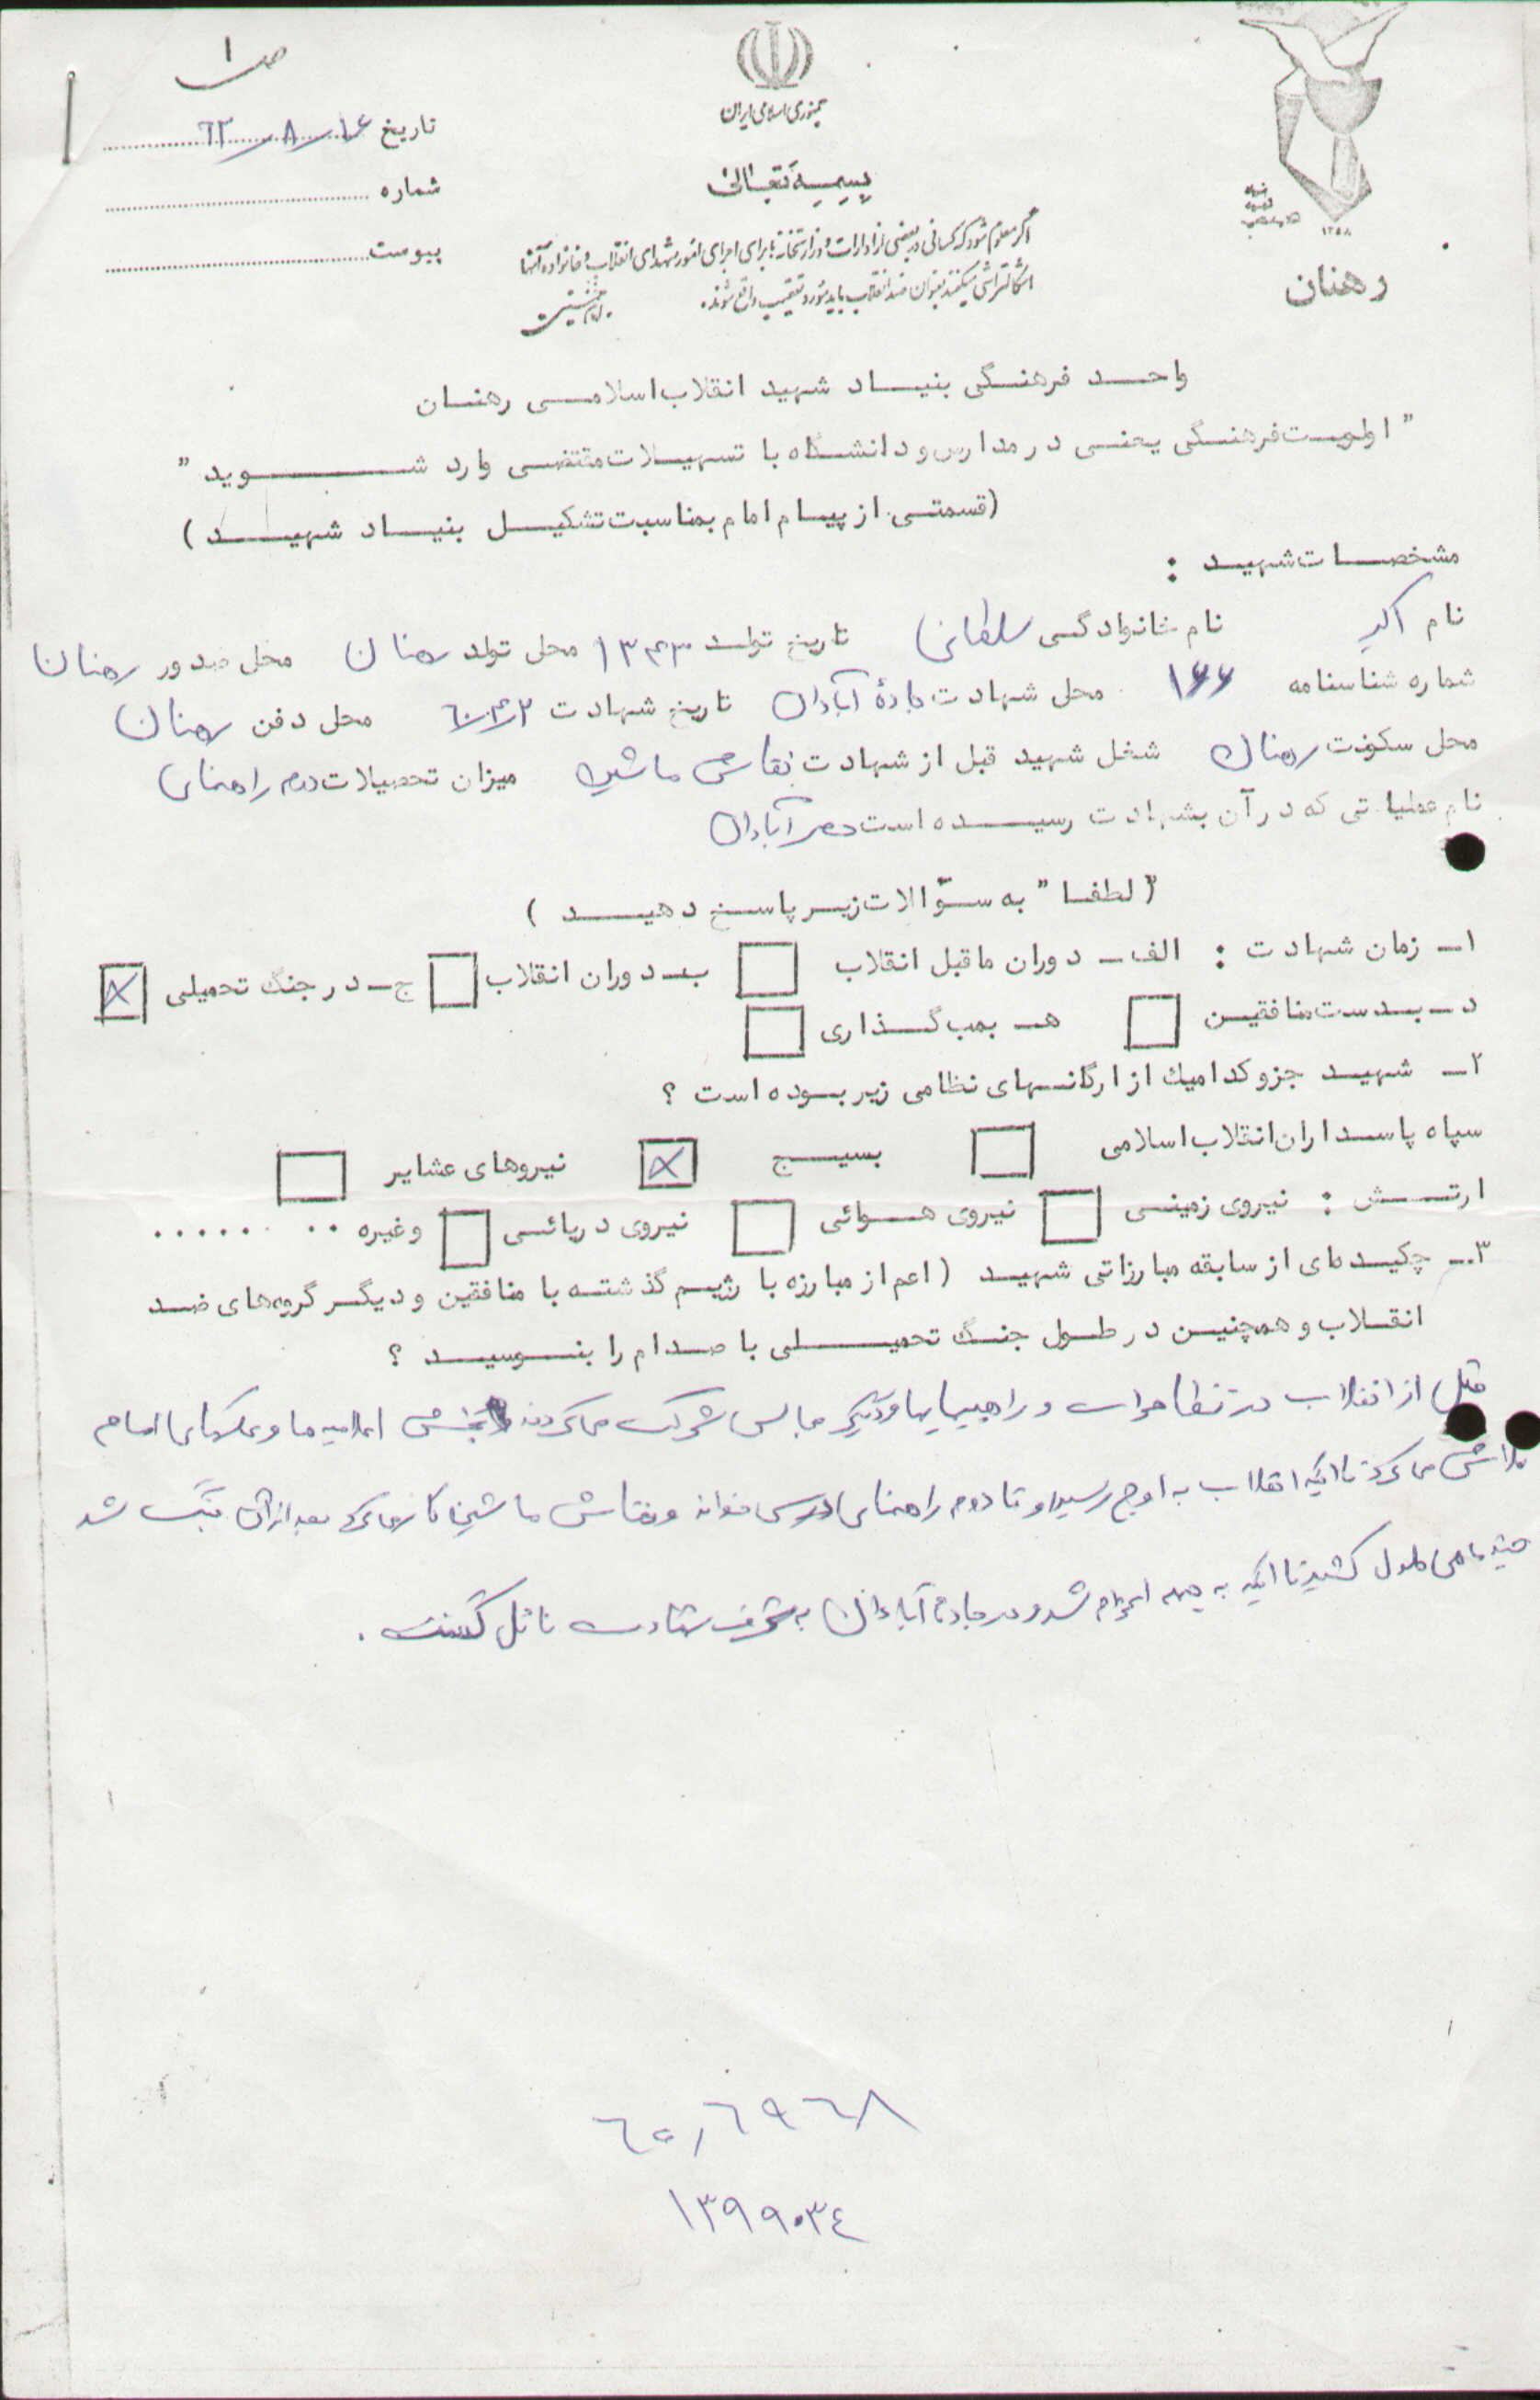 ص ۱
جمهوری اسلامی ایران
تاریخ ۶۲/۸/۱۶
بسمه تعالی
شماره
اگر معلوم شود که کسانی در بعضی از ادارات و وزارتخانه‌ها برای اجرای امور شهدای انقلاب و خانواده آنها
پیوست
اشکالتراشی میکنند بعنوان ضد انقلاب باید مورد تعقیب واقع شوند.
امام خمینی
۱۳۵۸
رهنان
واحد فرهنگی بنیاد شهید انقلاب اسلامی رهنان
" اولویت فرهنگی یعنی در مدارس و دانشگاه با تسهیلات مقتضی وارد شوید "
(قسمتی از پیام امام بمناسبت تشکیل بنیاد شهید )
مشخصات شهید :
نام اکبر نام خانوادگی سلطانی تاریخ تولد ۱۳۴۳ محل تولد رهنان محل صدور رهنان
شماره شناسنامه ۱۶۶ محل شهادت جادهٔ آبادان تاریخ شهادت ۶۰/۴/۲ محل دفن رهنان
محل سکونت رهنان شغل شهید قبل از شهادت نقاش ماشین میزان تحصیلات دوم راهنمایی
نام عملیاتی که در آن بشهادت رسیده است حصر آبادان
( لطفا" به سؤالات زیر پاسخ دهید )
۱ـ زمان شهادت : الف ـ دوران ماقبل انقلاب ب ـ دوران انقلاب ج ـ در جنگ تحمیلی
د ـ بدست منافقین هـ بمب گذاری
۲ـ شهید جزو کدامیك از ارگانهای نظامی زیر بوده است ؟
سپاه پاسداران انقلاب اسلامی بسیج نیروهای عشایر
ارتش : نیروی زمینی نیروی هوائی نیروی دریائی وغیره .......
۳ـ چکیده‌ای از سابقه مبارزاتی شهید ( اعم از مبارزه با رژیم گذشته با منافقین و دیگر گروه‌های ضد
انقلاب و همچنین در طول جنگ تحمیلی با صدام را بنویسید ؟
قبل از انقلاب در تظاهرات و راهپیمایها و دیگر مجالس شرکت می‌کرد و پخش اعلامیه‌ها و عکسهای امام
تلاش می‌کرد تا اینکه انقلاب به اوج رسید و تا دوم راهنمایی درس خواند و نقاش ماشین کار می‌کرد بعد از آن جنگ شد
چند ماهی طول کشید تا اینکه به جبهه اعزام شد و در جاده آبادان به شرف شهادت نائل گشت .
۶۰۱۶۹۶۸
۱۳۹۹۰۳۴